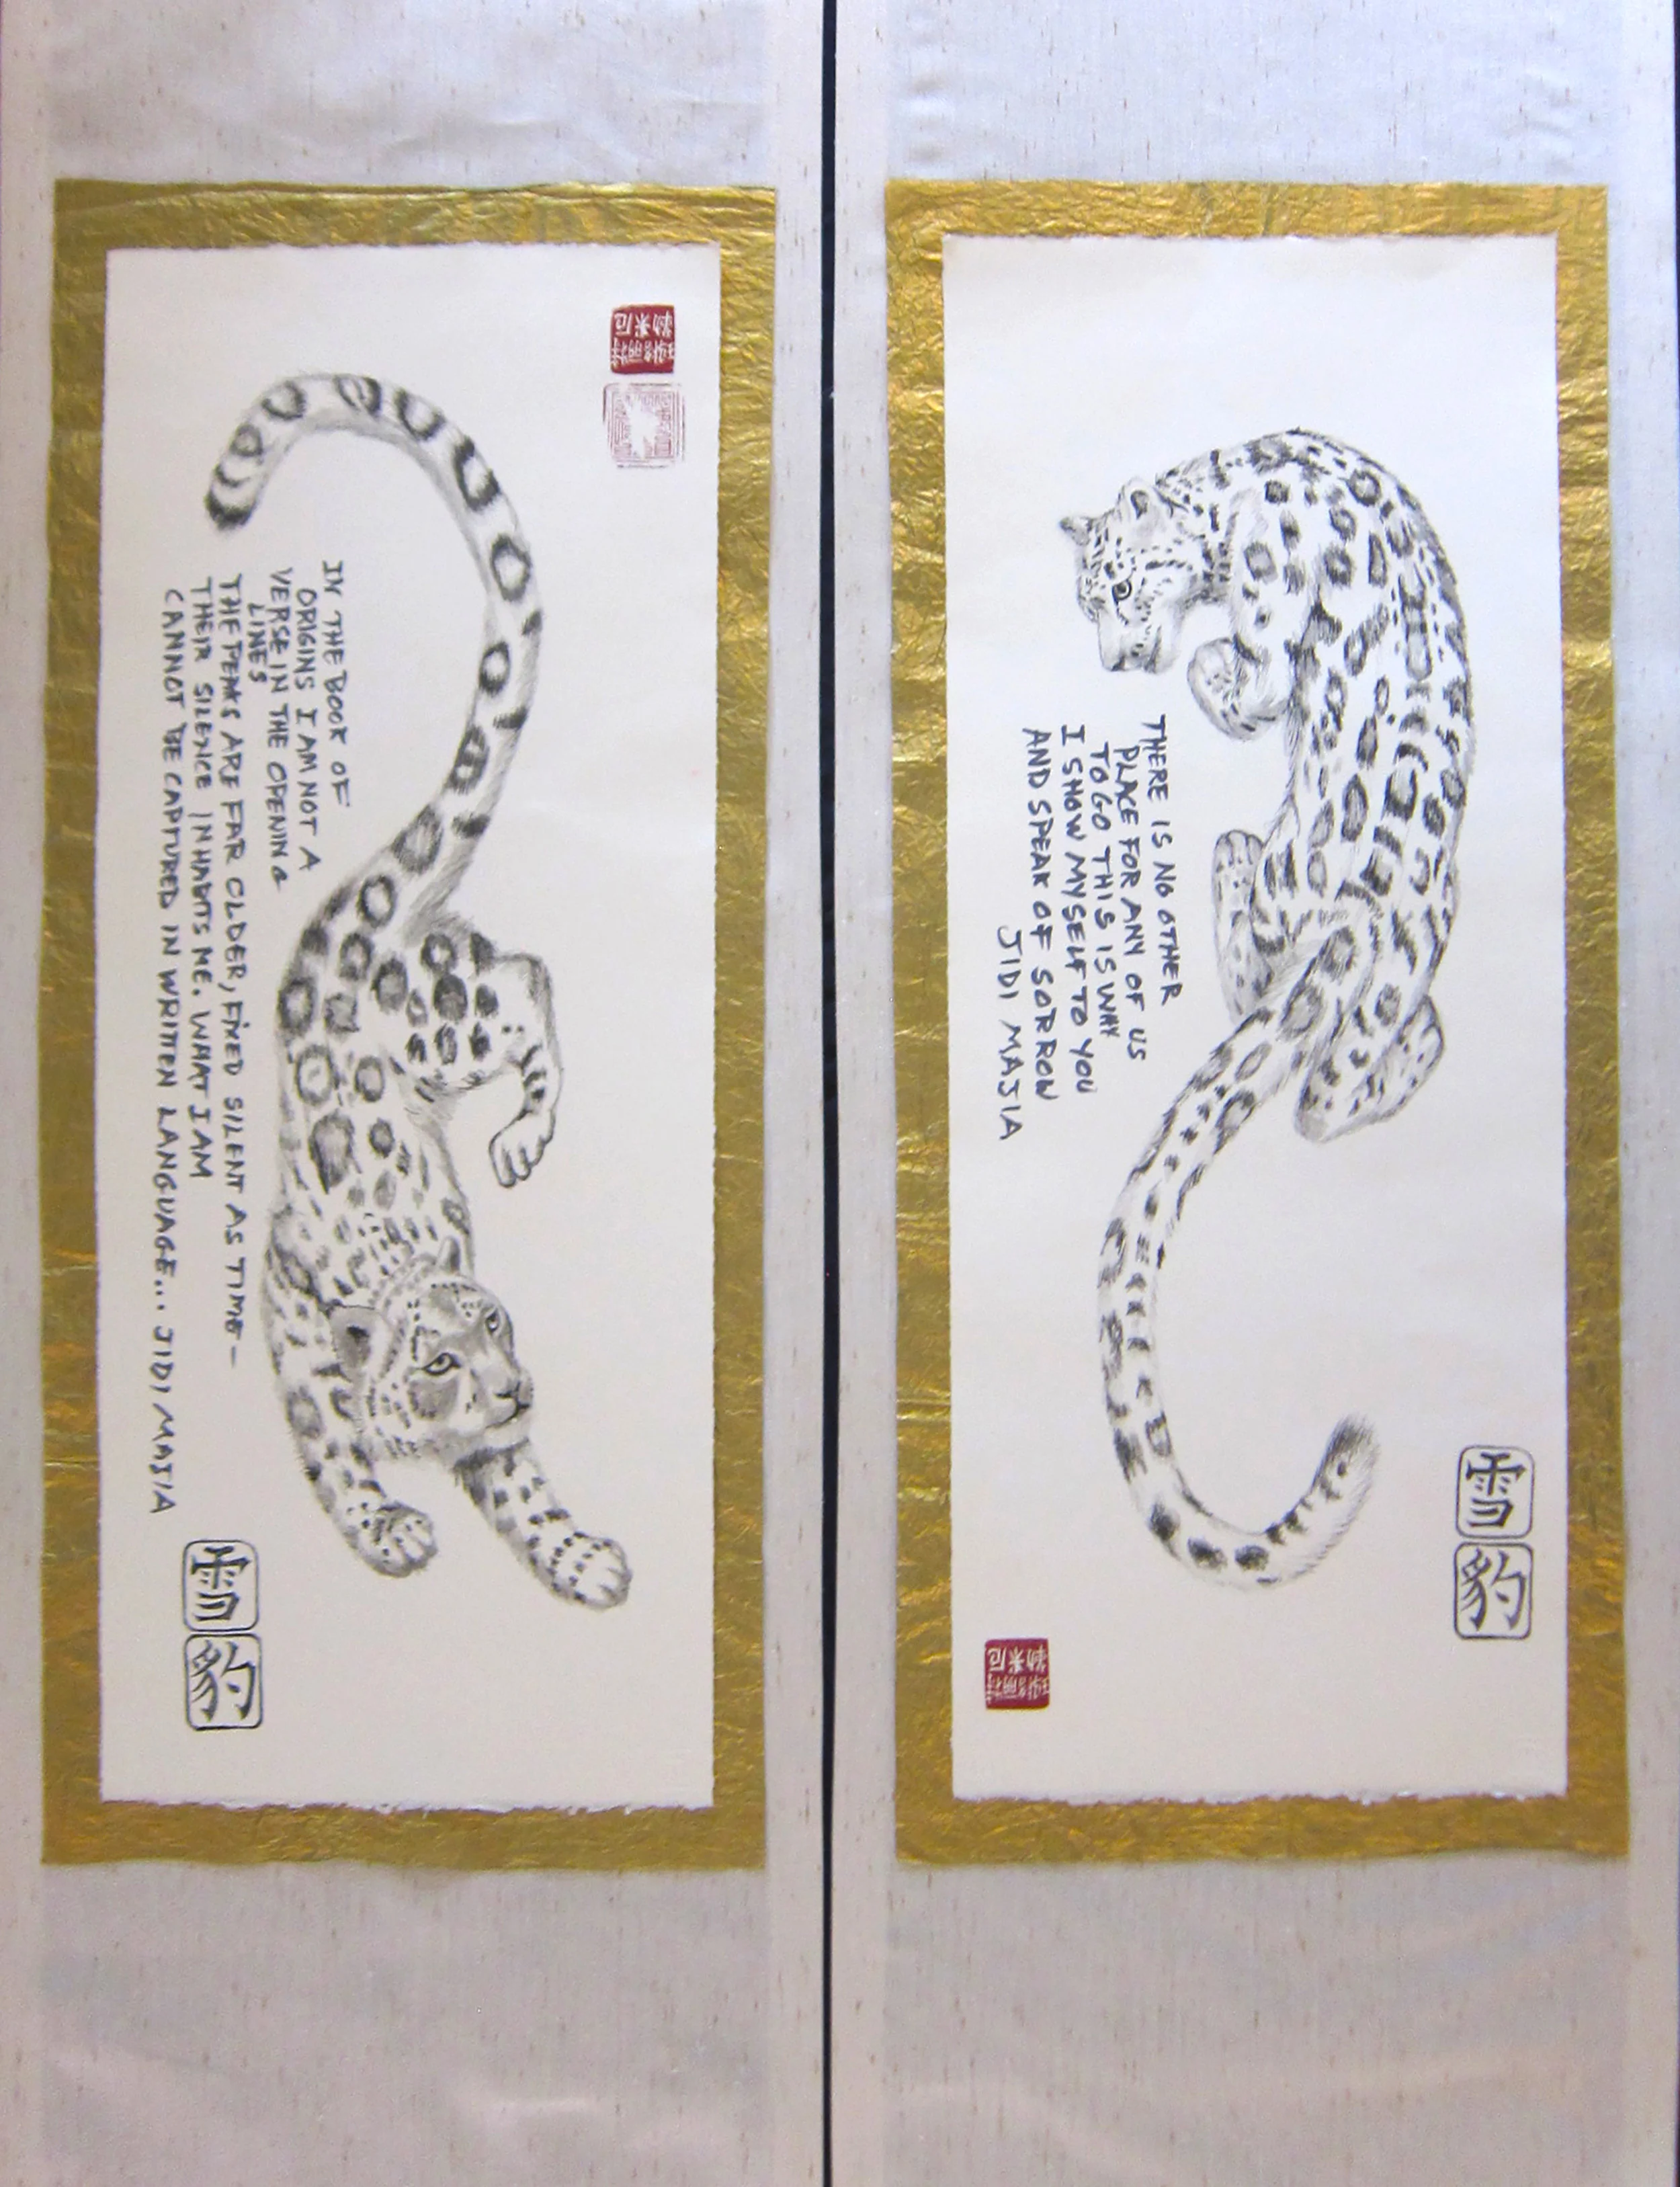 THERE IS NO OTHER
PLACE FOR ANY OF US
TO GO THIS IS WHY
I SHOW MYSELF TO YOU
AND SPEAK OF SORROW
JIDI MAJIA
雪豹
IN THE BOOK OF
ORIGINS I AM NOT A
VERSE IN THE OPENING
LINES
THE PEAKS ARE FAR OLDER, FIXED SILENT AS TIME—
THEIR SILENCE INHABITS ME. WHAT I AM
CANNOT BE CAPTURED IN WRITTEN LANGUAGE... JIDI MAJIA
雪豹